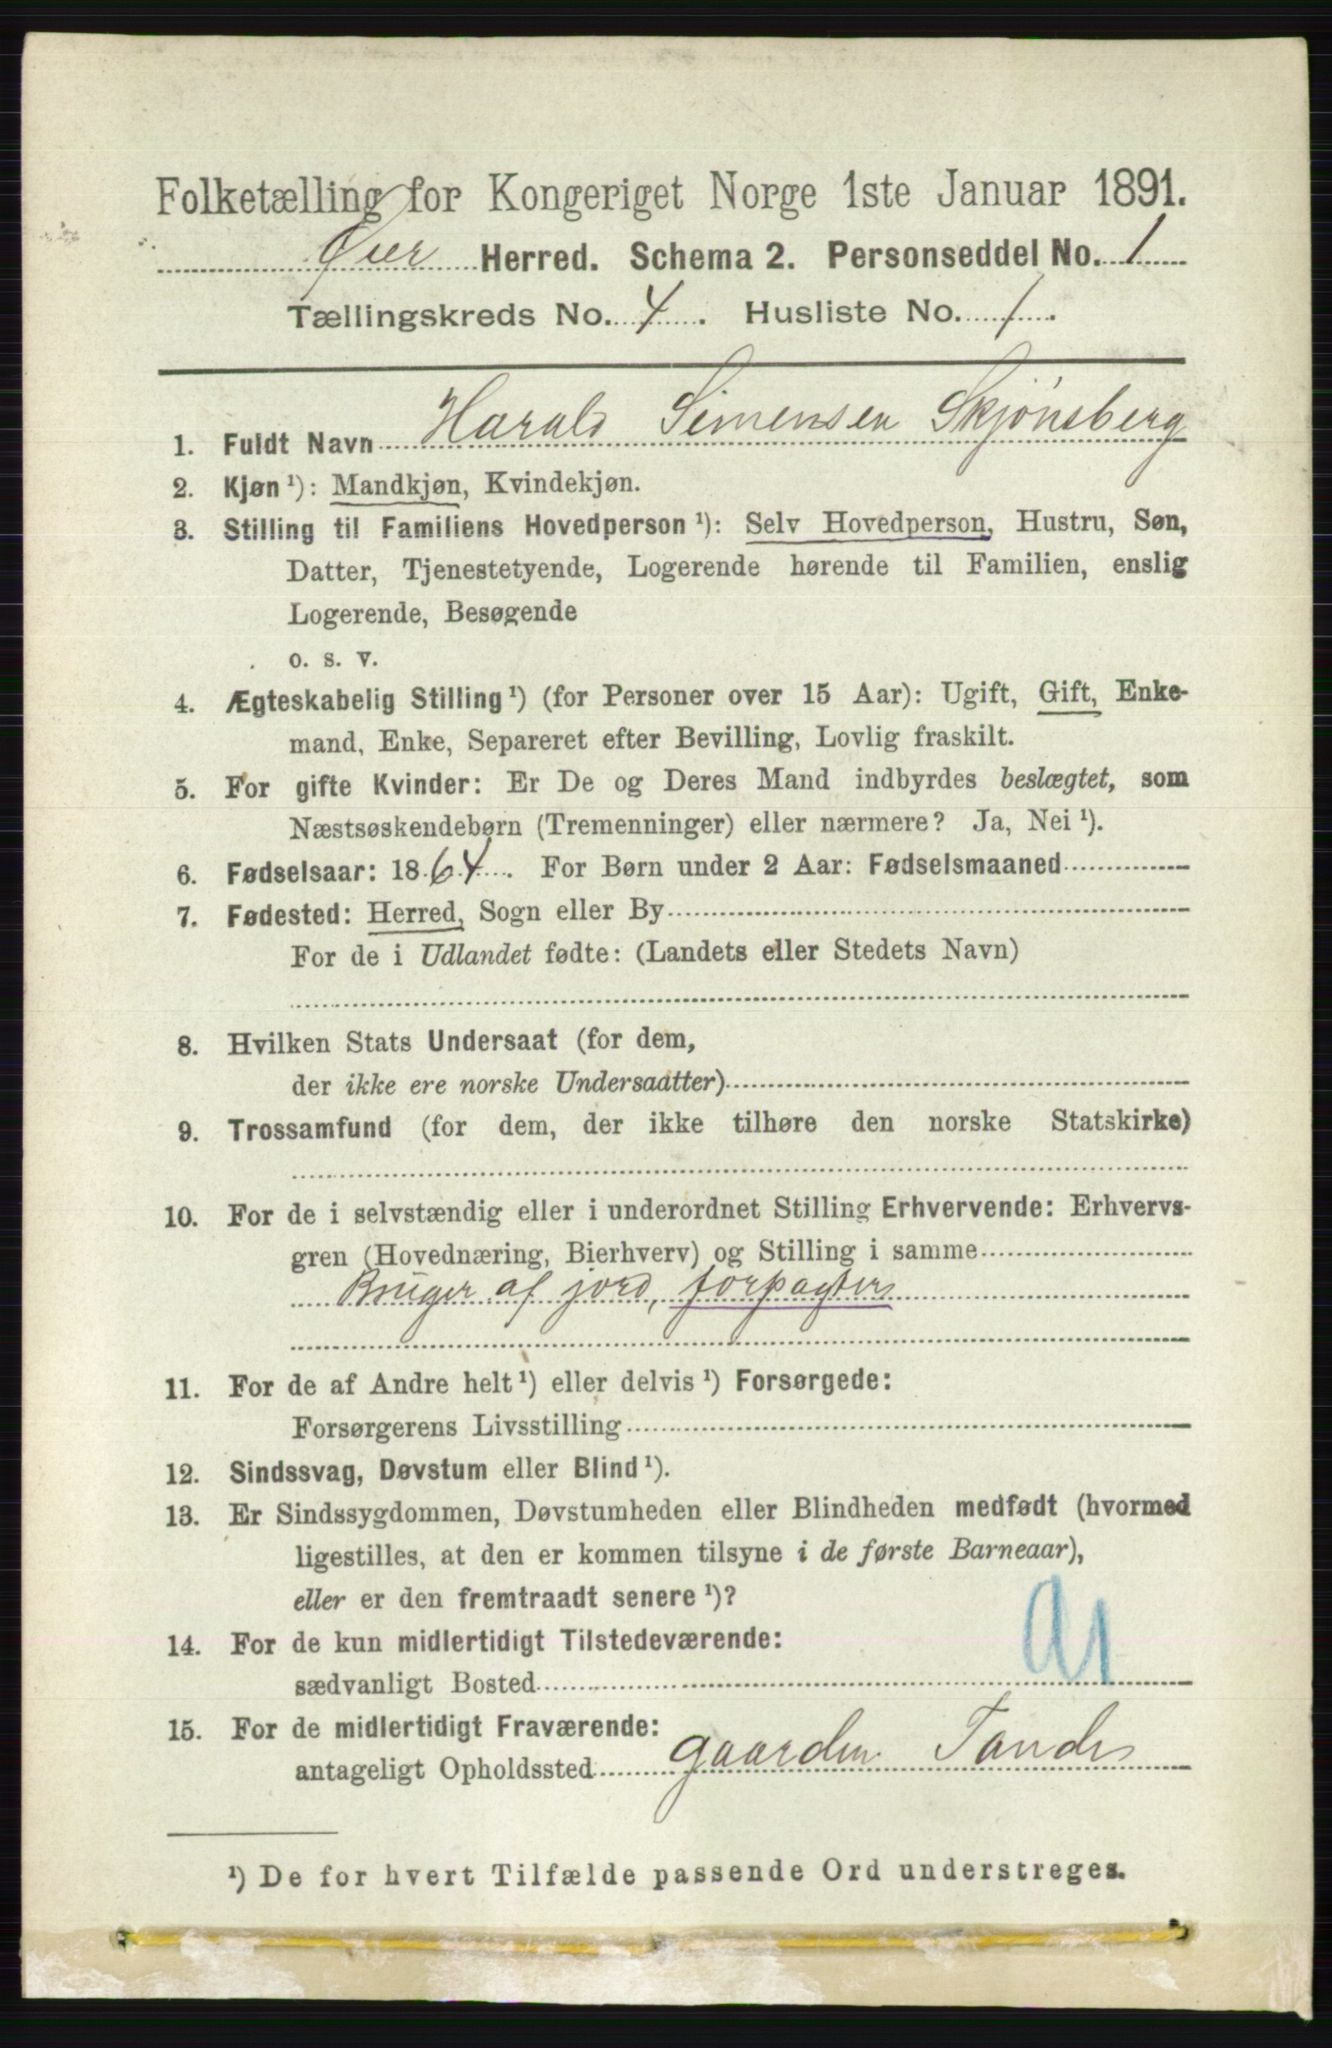 Folketælling for Kongeriget Norge 1ste Januar 1891.
Øier Herred. Schema 2. Personseddel No. 1
Tællingskreds No. 4. Husliste No. 1.
Harald Simensen Skjønsberg
1. Fuldt Navn
2. Kjøn ¹): Mandkjøn, Kvindekjøn.
3. Stilling til Familiens Hovedperson ¹): Selv Hovedperson, Hustru, Søn,
Datter, Tjenestetyende, Logerende hørende til Familien, enslig
Logerende, Besøgende
o. s. v.
4. Ægteskabelig Stilling ¹) (for Personer over 15 Aar): Ugift, Gift, Enke-
mand, Enke, Separeret efter Bevilling, Lovlig fraskilt.
5. For gifte Kvinder: Er De og Deres Mand indbyrdes beslægtet, som
Næstsøskendebørn (Tremenninger) eller nærmere? Ja, Nei ¹).
6. Fødselsaar: 1864. For Børn under 2 Aar: Fødselsmaaned
7. Fødested: Herred, Sogn eller By
For de i Udlandet fødte: (Landets eller Stedets Navn)
8. Hvilken Stats Undersaat (for dem,
der ikke ere norske Undersaatter)
9. Trossamfund (for dem, der ikke tilhøre den norske Statskirke)
10. For de i selvstændig eller i underordnet Stilling Erhvervende: Erhvervs-
gren (Hovednæring, Bierhverv) og Stilling i samme
Bruger af jord, forpagter
11. For de af Andre helt ¹) eller delvis ¹) Forsørgede:
Forsørgerens Livsstilling
12. Sindssvag, Døvstum eller Blind ¹).
13. Er Sindssygdommen, Døvstumheden eller Blindheden medfødt (hvormed
ligestilles, at den er kommen tilsyne i de første Barneaar),
eller er den fremtraadt senere ¹)?
14. For de kun midlertidigt Tilstedeværende:
sædvanligt Bosted
15. For de midlertidigt Fraværende:
antageligt Opholdssted gaarden Tande
¹) De for hvert Tilfælde passende Ord understreges.